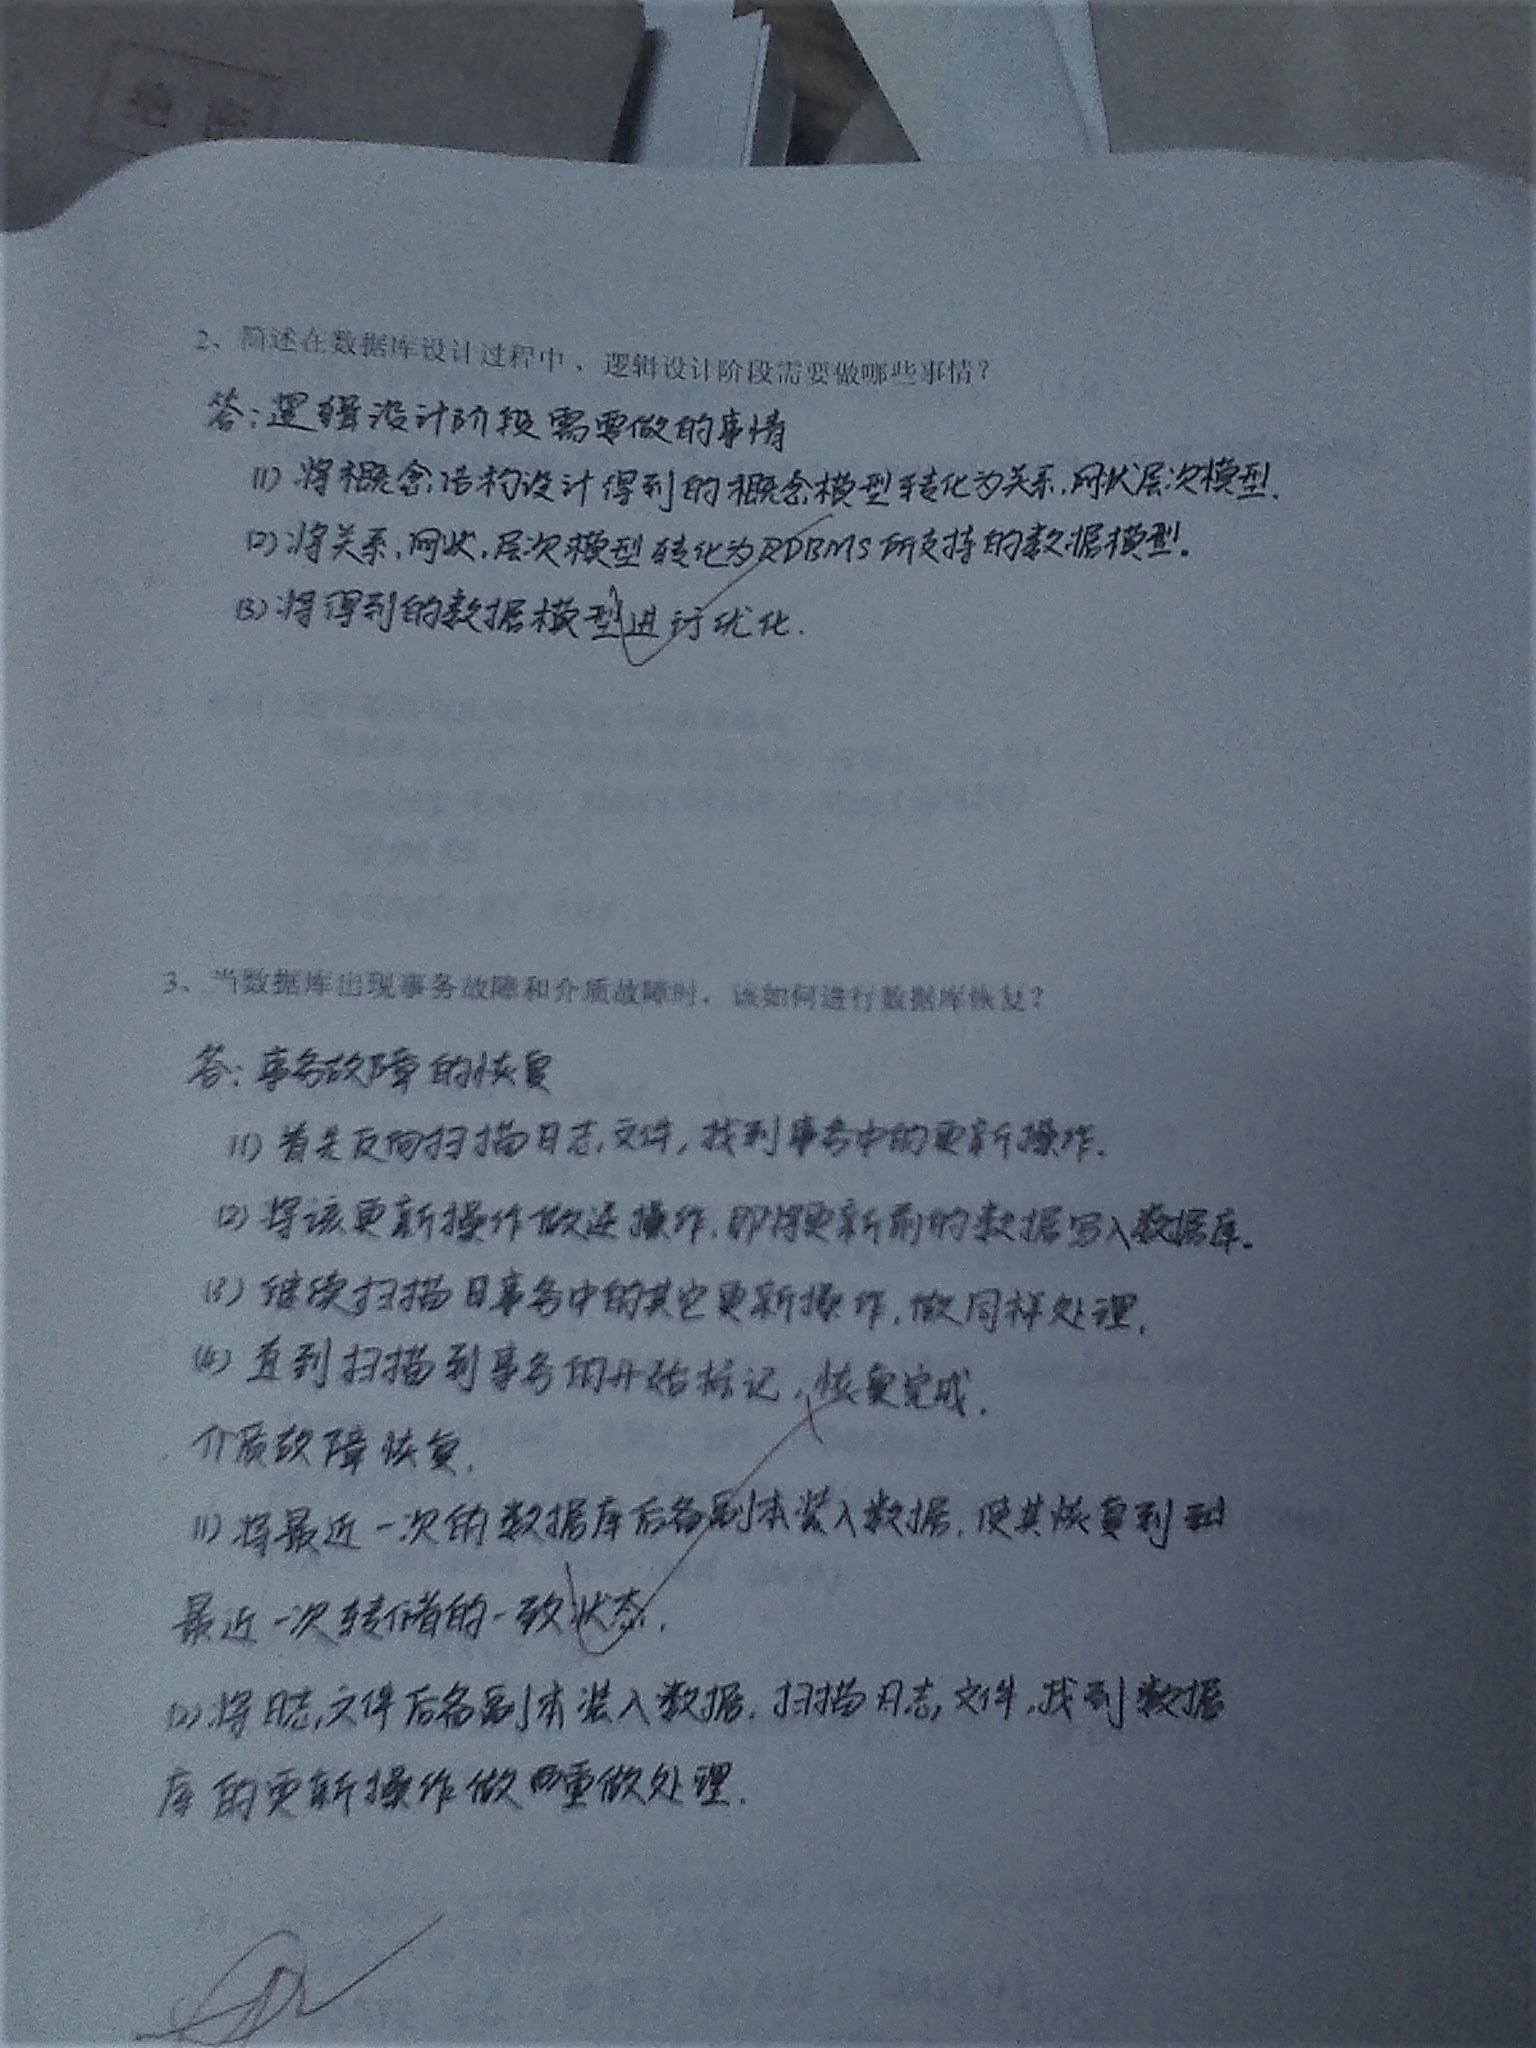 2、简述在数据库设计过程中，逻辑设计阶段需要做哪些事情？
答：逻辑设计阶段需要做的事情
(1) 将概念结构设计得到的概念模型转化为关系.网状层次模型.
(2) 将关系.网状.层次模型转化为RDBMS所支持的数据模型.
(3) 将得到的数据模型进行优化.
3、当数据库出现事务故障和介质故障时，该如何进行数据库恢复？
答：事务故障的恢复
(1) 首先反向扫描日志文件, 找到事务中的更新操作.
(2) 将该更新操作做逆操作. 即将更新前的数据写入数据库.
(3) 继续扫描日事务中的其它更新操作, 做同样处理.
(4) 直到扫描到事务的开始标记, 恢复完成.
介质故障恢复.
(1) 将最近一次的数据库后备副本装入数据, 使其恢复到
最近一次转储的一致状态.
(2) 将日志文件后备副本装入数据. 扫描日志文件, 找到数据
库的更新操作做重做处理.